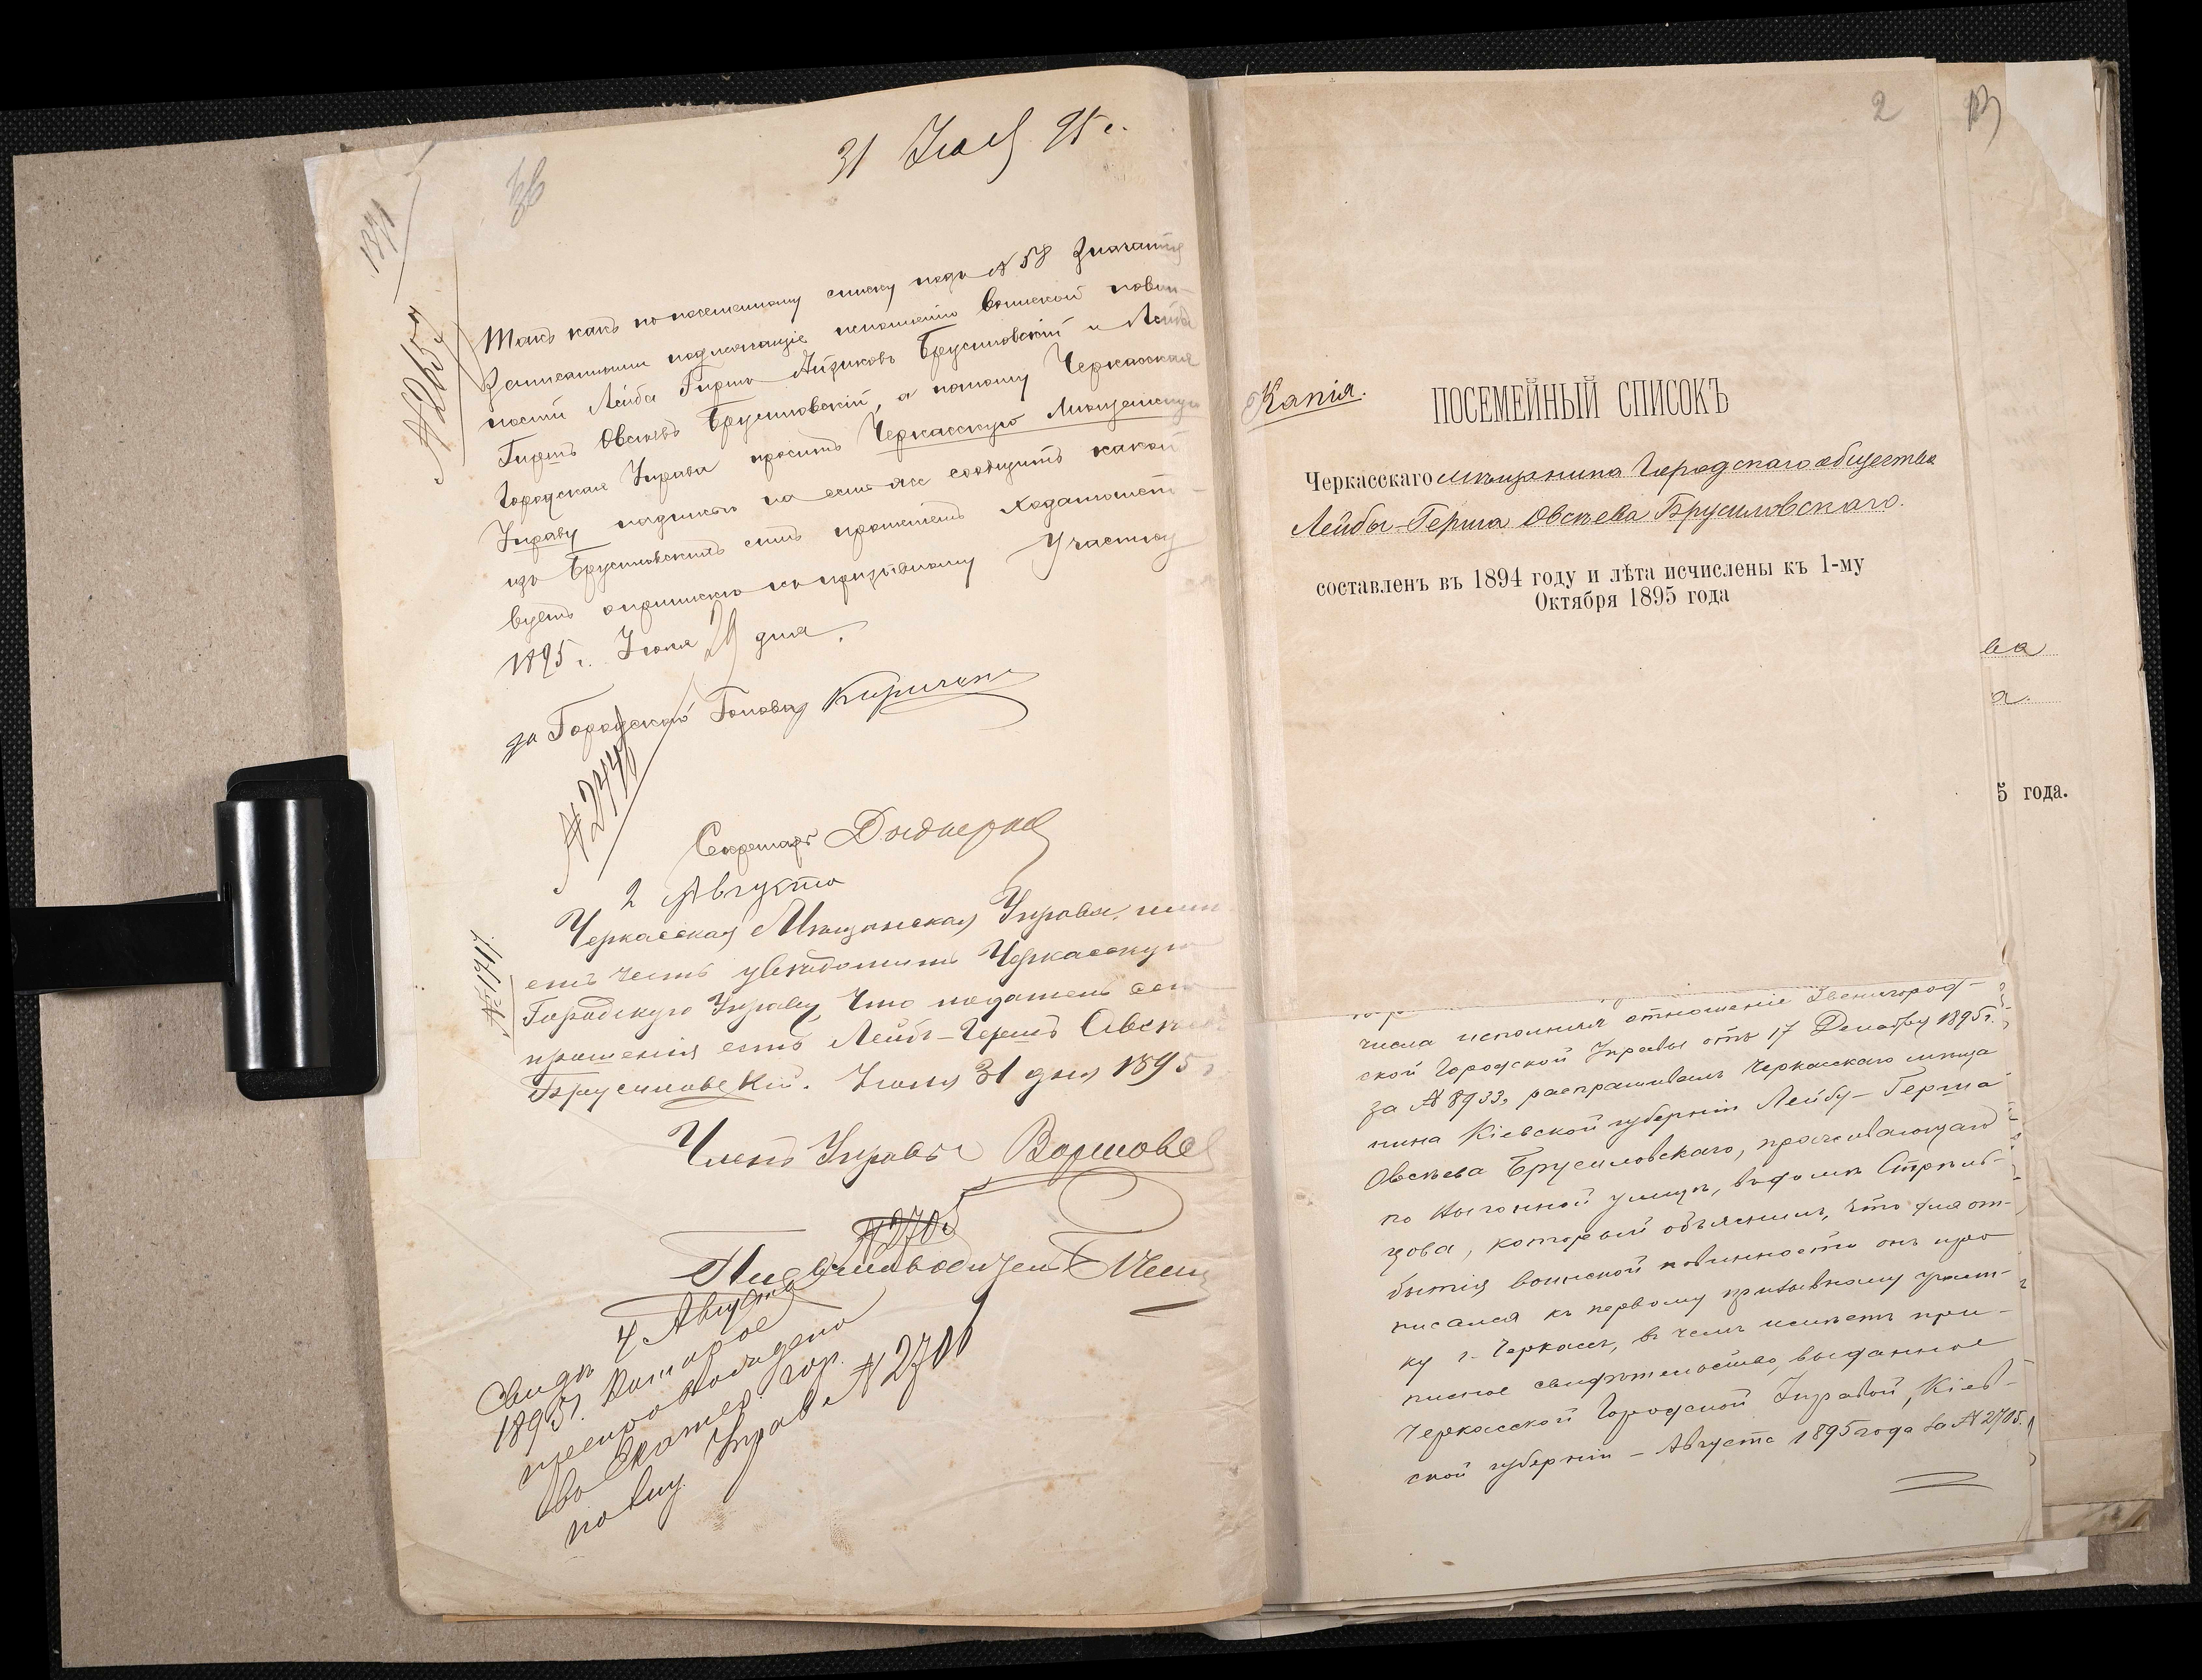 31 Июля 95 г.
1871
№ 2657
Такъ какъ по посемейному списку подъ № 58 значатся
записанными подлежащіе исполненію воинской повин-
ности Лейба Гирша Айзиковъ Брусиловскій и Лейба
Гиршъ Овсѣевъ Брусиловскій, а потому Черкасская
Городская Управа проситъ Черкасскую Мѣщанскую
Управу надписью на семъ же сообщить какой
изъ Брусиловскихъ симъ прошеніемъ ходатайст-
вуетъ о припискѣ къ призывному участку
1895 г. Іюля 29 дня.
за Городского Голову
Секретарь
2 Августа
№ 1717.
Черкасская Мѣщанская Управа, имѣ-
етъ честь увѣдомить Черкасскую
Городскую Управу, что податель сего
прошенія есть Лейба-Гершъ Овсѣевъ
Брусиловскій. Іюля 31 дня 1895 г.
Членъ Управы
№ 2705
4 Августа
1895 г.
№ 2700
2
Капія.
ПОСЕМЕЙНЫЙ СПИСОКЪ
Черкасскаго мѣщанина Городскаго общества
Лейбы-Герша Овсѣева Брусиловскаго.
составленъ въ 1894 году и лѣта исчислены къ 1-му
Октября 1895 года
ва
а.
5 года.
числа исполняя отношеніе Звенигород-
ской Городской Управы отъ 17 Декабря 1895 г.
за № 8933, распрашивалъ Черкасскаго мѣща
нина Кіевской губерніи Лейбу-Герша
Овсѣева Брусиловскаго, проживающаго
по улицѣ, въ домѣ
цова, который объяснилъ, что для от-
бытія воинской повинности онъ при
писался къ первому призывному участ-
ку г. Черкассъ, въ чемъ имѣетъ при-
писное свидѣтельство, выданное
Черкасской Городской Управой, Кіев-
ской губерніи - Августа 1895 года за № 2705.